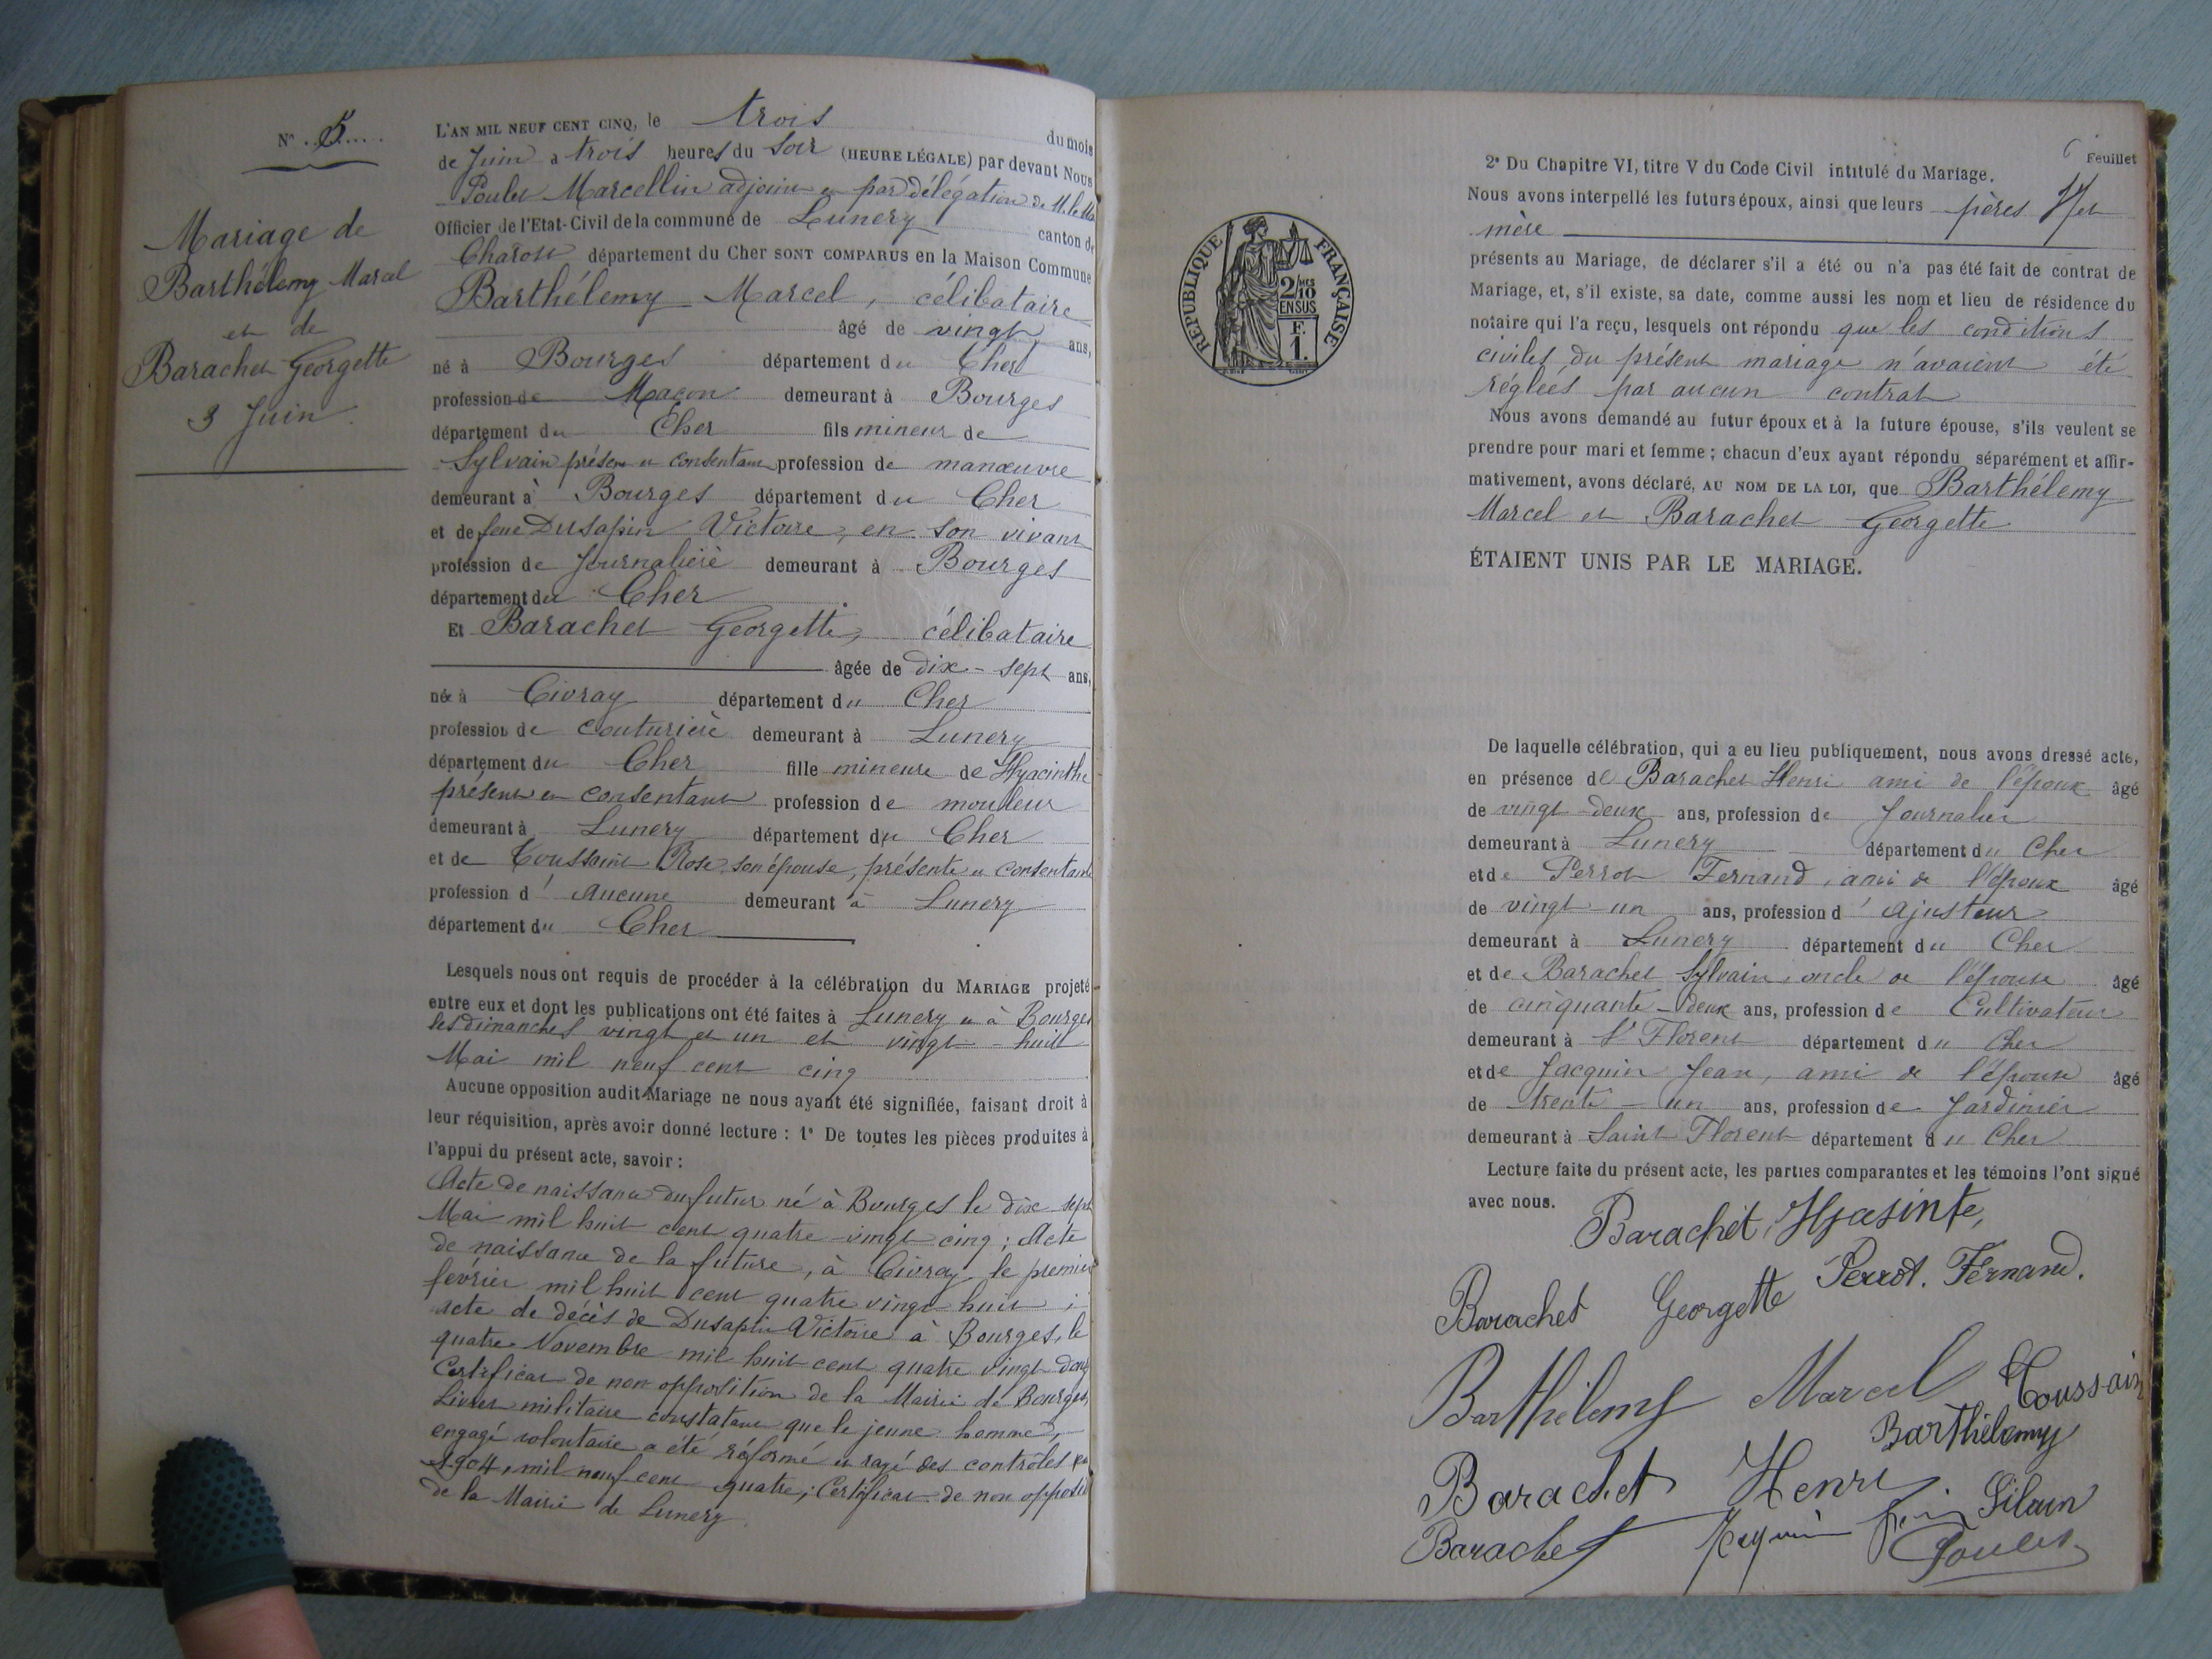 N° 5
Mariage de
Barthélemy Marcel
et de
Barachet Georgette
3 Juin
L'AN MIL NEUF CENT CINQ, le trois du mois
de Juin à trois heures du soir (HEURE LÉGALE) par devant Nous
Poulet Marcellin adjoint et par délégation de M. le Ma
Officier de l'Etat-Civil de la commune de Lunery canton de
Charost département du Cher SONT COMPARUS en la Maison Commune
Barthélemy Marcel, célibataire
âgé de vingt ans,
né à Bourges département du Cher
profession de Maçon demeurant à Bourges
département du Cher fils mineur de
Sylvain présent et consentant profession de manœuvre
demeurant à Bourges département du Cher
et de feue Dusapin Victoire, en son vivant
profession de Journalière demeurant à Bourges
département du Cher
Et Barachet Georgette, célibataire
âgée de dix-sept ans,
née à Civray département du Cher
profession de couturière demeurant à Lunery
département du Cher fille mineure de Hyacinthe
présent et consentant profession de mouleur
demeurant à Lunery département du Cher
et de Toussaint Rose, son épouse, présente et consentante
profession d'aucune demeurant à Lunery
département du Cher
Lesquels nous ont requis de procéder à la célébration du MARIAGE projeté
entre eux et dont les publications ont été faites à Lunery et à Bourges
les dimanches vingt et un et vingt-huit
Mai mil neuf cent cinq
Aucune opposition audit Mariage ne nous ayant été signifiée, faisant droit à
leur réquisition, après avoir donné lecture : 1° De toutes les pièces produites à
l'appui du présent acte, savoir :
Acte de naissance du futur né à Bourges le dix-sept
Mai mil huit cent quatre-vingt cinq ; Acte
de naissance de la future, à Civray le premier
février mil huit cent quatre vingt huit ;
acte de décès de Dusapin Victoire à Bourges, le
quatre Novembre mil huit cent quatre vingt
Certificat de non opposition de la Mairie de Bourges,
Livret militaire constatant que le jeune homme,
engagé volontaire a été réformé et rayé des contrôles en
1904, mil neuf cent quatre ; Certificat de non opposit
de la Mairie de Lunery
6 Feuillet
2° Du Chapitre VI, titre V du Code Civil intitulé du Mariage.
Nous avons interpellé les futurs époux, ainsi que leurs pères et
mère
présents au Mariage, de déclarer s'il a été ou n'a pas été fait de contrat de
Mariage, et, s'il existe, sa date, comme aussi les nom et lieu de résidence du
notaire qui l'a reçu, lesquels ont répondu que les conditions
civiles du présent mariage n'avaient été
réglées par aucun contrat
Nous avons demandé au futur époux et à la future épouse, s'ils veulent se
prendre pour mari et femme ; chacun d'eux ayant répondu séparément et affir-
mativement, avons déclaré, AU NOM DE LA LOI, que Barthélemy
Marcel et Barachet Georgette
ÉTAIENT UNIS PAR LE MARIAGE.
RÉPUBLIQUE FRANÇAISE
2/10 MES
EN SUS
F.
1.
De laquelle célébration, qui a eu lieu publiquement, nous avons dressé acte,
en présence de Barachet Henri ami de l'époux âgé
de vingt-deux ans, profession de Journalier
demeurant à Lunery département du Cher
et de Perrot Fernand, ami de l'époux âgé
de vingt-un ans, profession d'ajusteur
demeurant à Lunery département du Cher
et de Barachet Sylvain, oncle de l'épouse âgé
de cinquante-deux ans, profession de Cultivateur
demeurant à St Florent département du Cher
et de Jacquin Jean, ami de l'épouse âgé
de trente-un ans, profession de Jardinier
demeurant à Saint Florent département du Cher
Lecture faite du présent acte, les parties comparantes et les témoins l'ont signé
avec nous.
Barachet, Hyasinte,
Perrot. Fernand.
Barachet Georgette
Barthélemy Marcel
Toussain
Barthélemy
Barachet Henri
Silvain
Barachet
Poulet